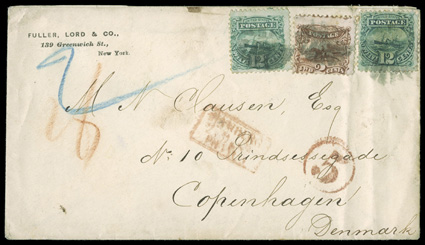 FULLER, LORD & CO.,
139 Greenwich St.,
New York.
POSTAGE
12
POSTAGE
POSTAGE
12
2
M. N. Clausen, Esq
No. 10 Prindsessegade
Copenhagen
Denmark